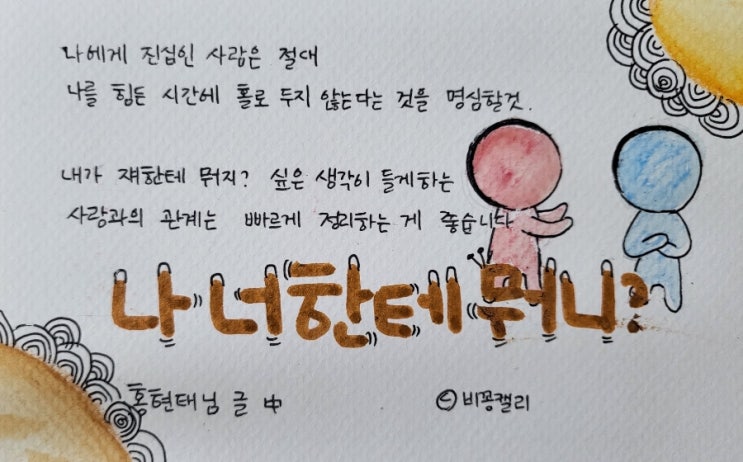 나에게 진심인 사람은 절대
나를 힘든 시간에 홀로 두지 않는다는 것을 명심할것.
내가 쟤한테 뭐지? 싶은 생각이 들게하는
사람과의 관계는 빠르게 정리하는 게 좋습니다
나 너한테 뭐니?
홍현태님 글 中
ⓒ비꽁캘리